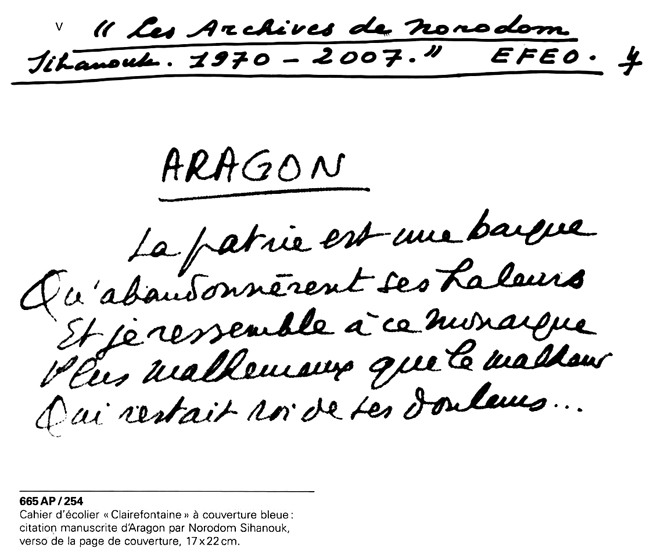 v « Les Archives de Norodom
Sihanouk. 1970 - 2007. » EFEO.
ARAGON
La patrie est une barque
Qu'abandonnèrent ses haleurs
Et je ressemble à ce monarque
Plus malheureux que le malheur
Qui restait roi de ses douleurs...
665 AP / 254
Cahier d'écolier « Clairefontaine » à couverture bleue :
citation manuscrite d'Aragon par Norodom Sihanouk,
verso de la page de couverture, 17 x 22 cm.